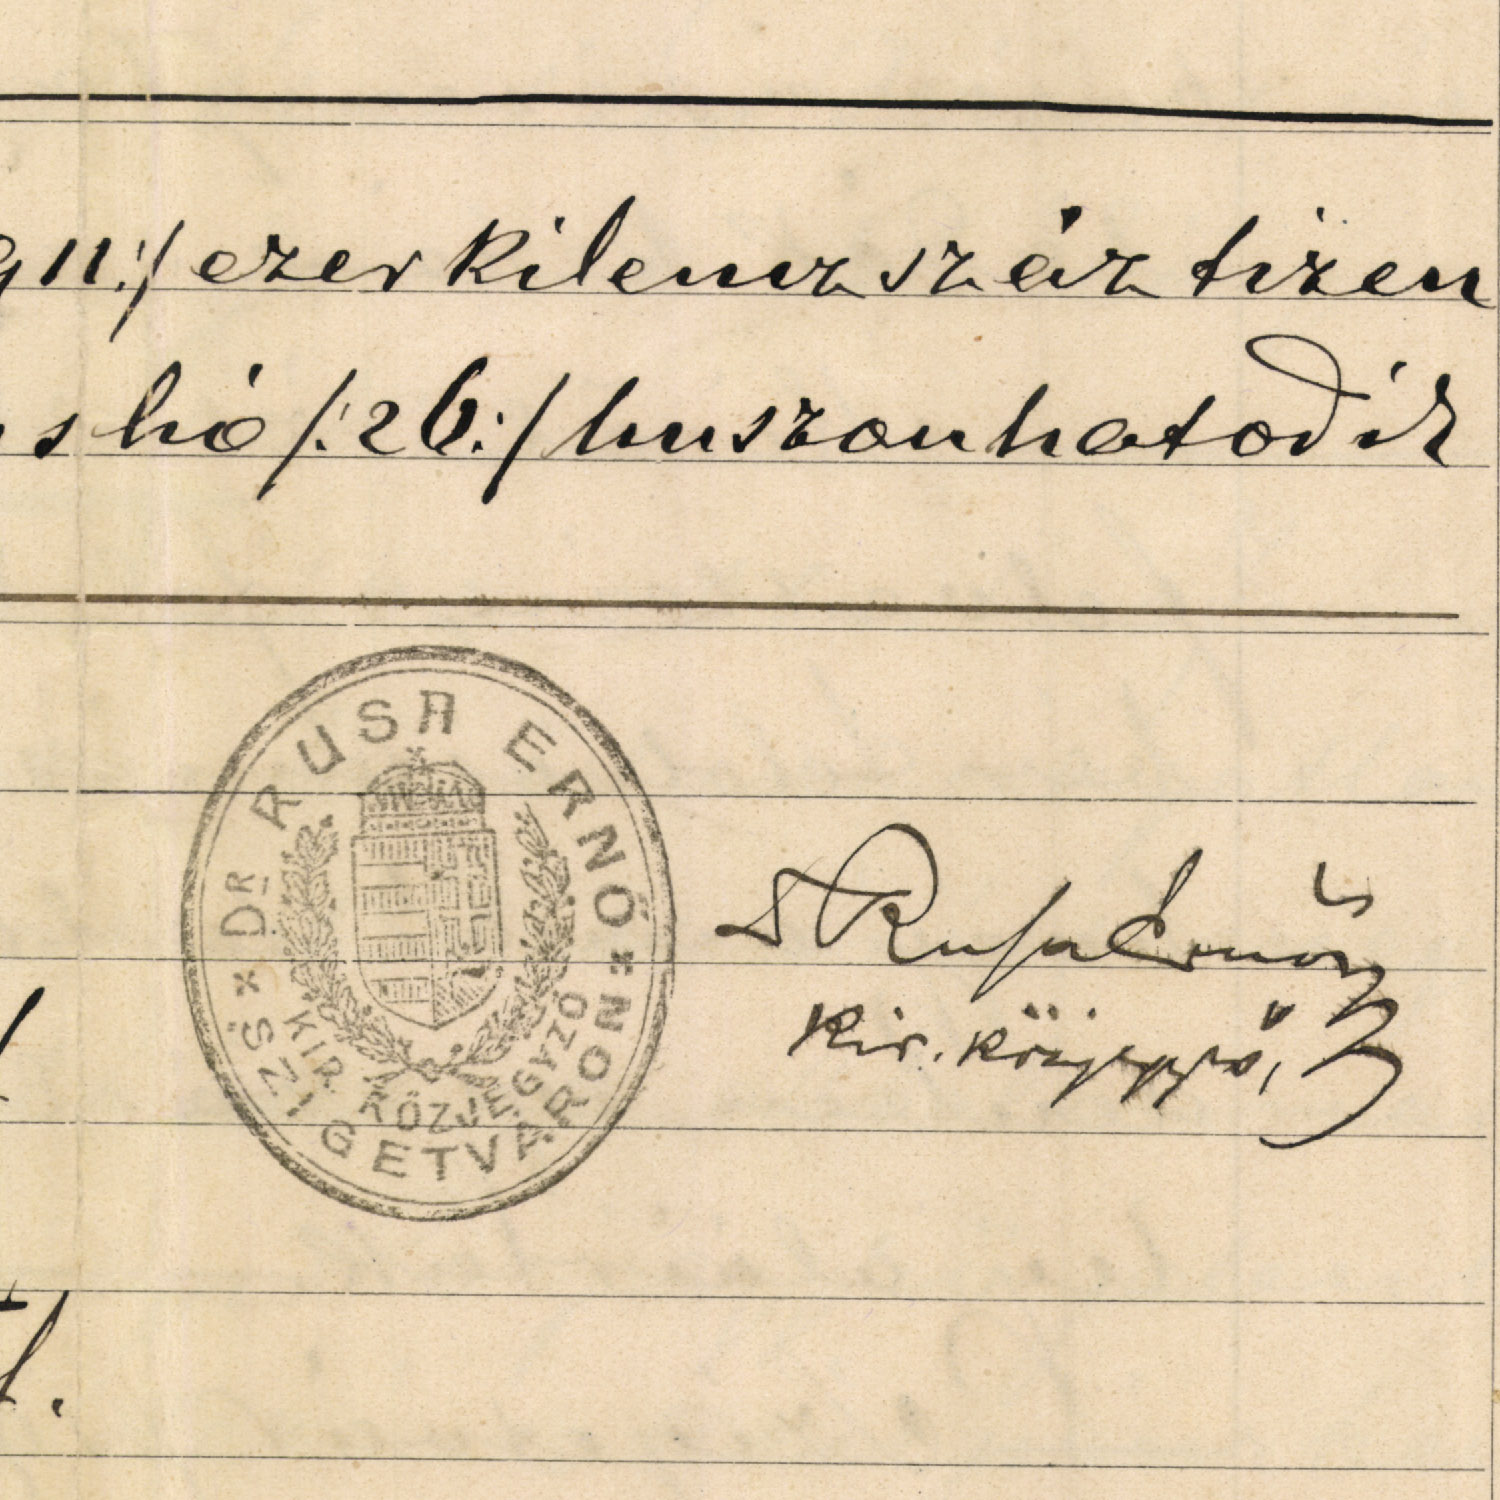 911:/ ezer kilencz száz tizen
s hó /:26:/ huszonhatodik
DR RUSA ERNŐ
SZIGETVÁRON
KIR KÖZJEGYZŐ
Dr Rusa Ernő
kir. közjegyző,